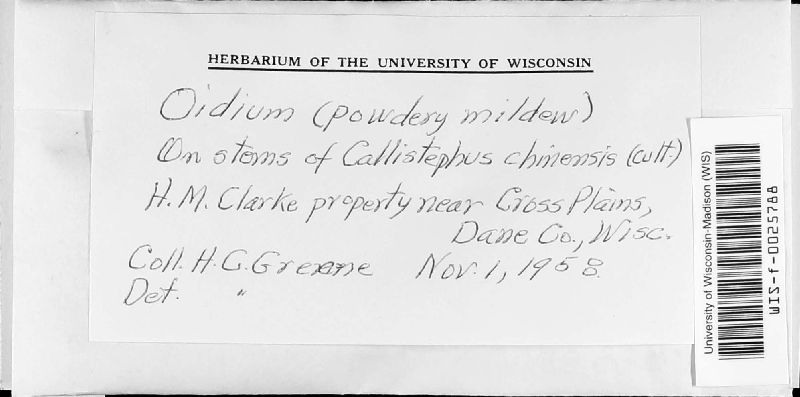 HERBARIUM OF THE UNIVERSITY OF WISCONSIN
Oidium (powdery mildew)
On stems of Callistephus chinensis (cult.)
H. M. Clarke property near Cross Plains,
Dane Co., Wisc.
Coll. H. C. Greene Nov. 1, 1958.
Det. "
University of Wisconsin-Madison (WIS)
WIS-f-0025788